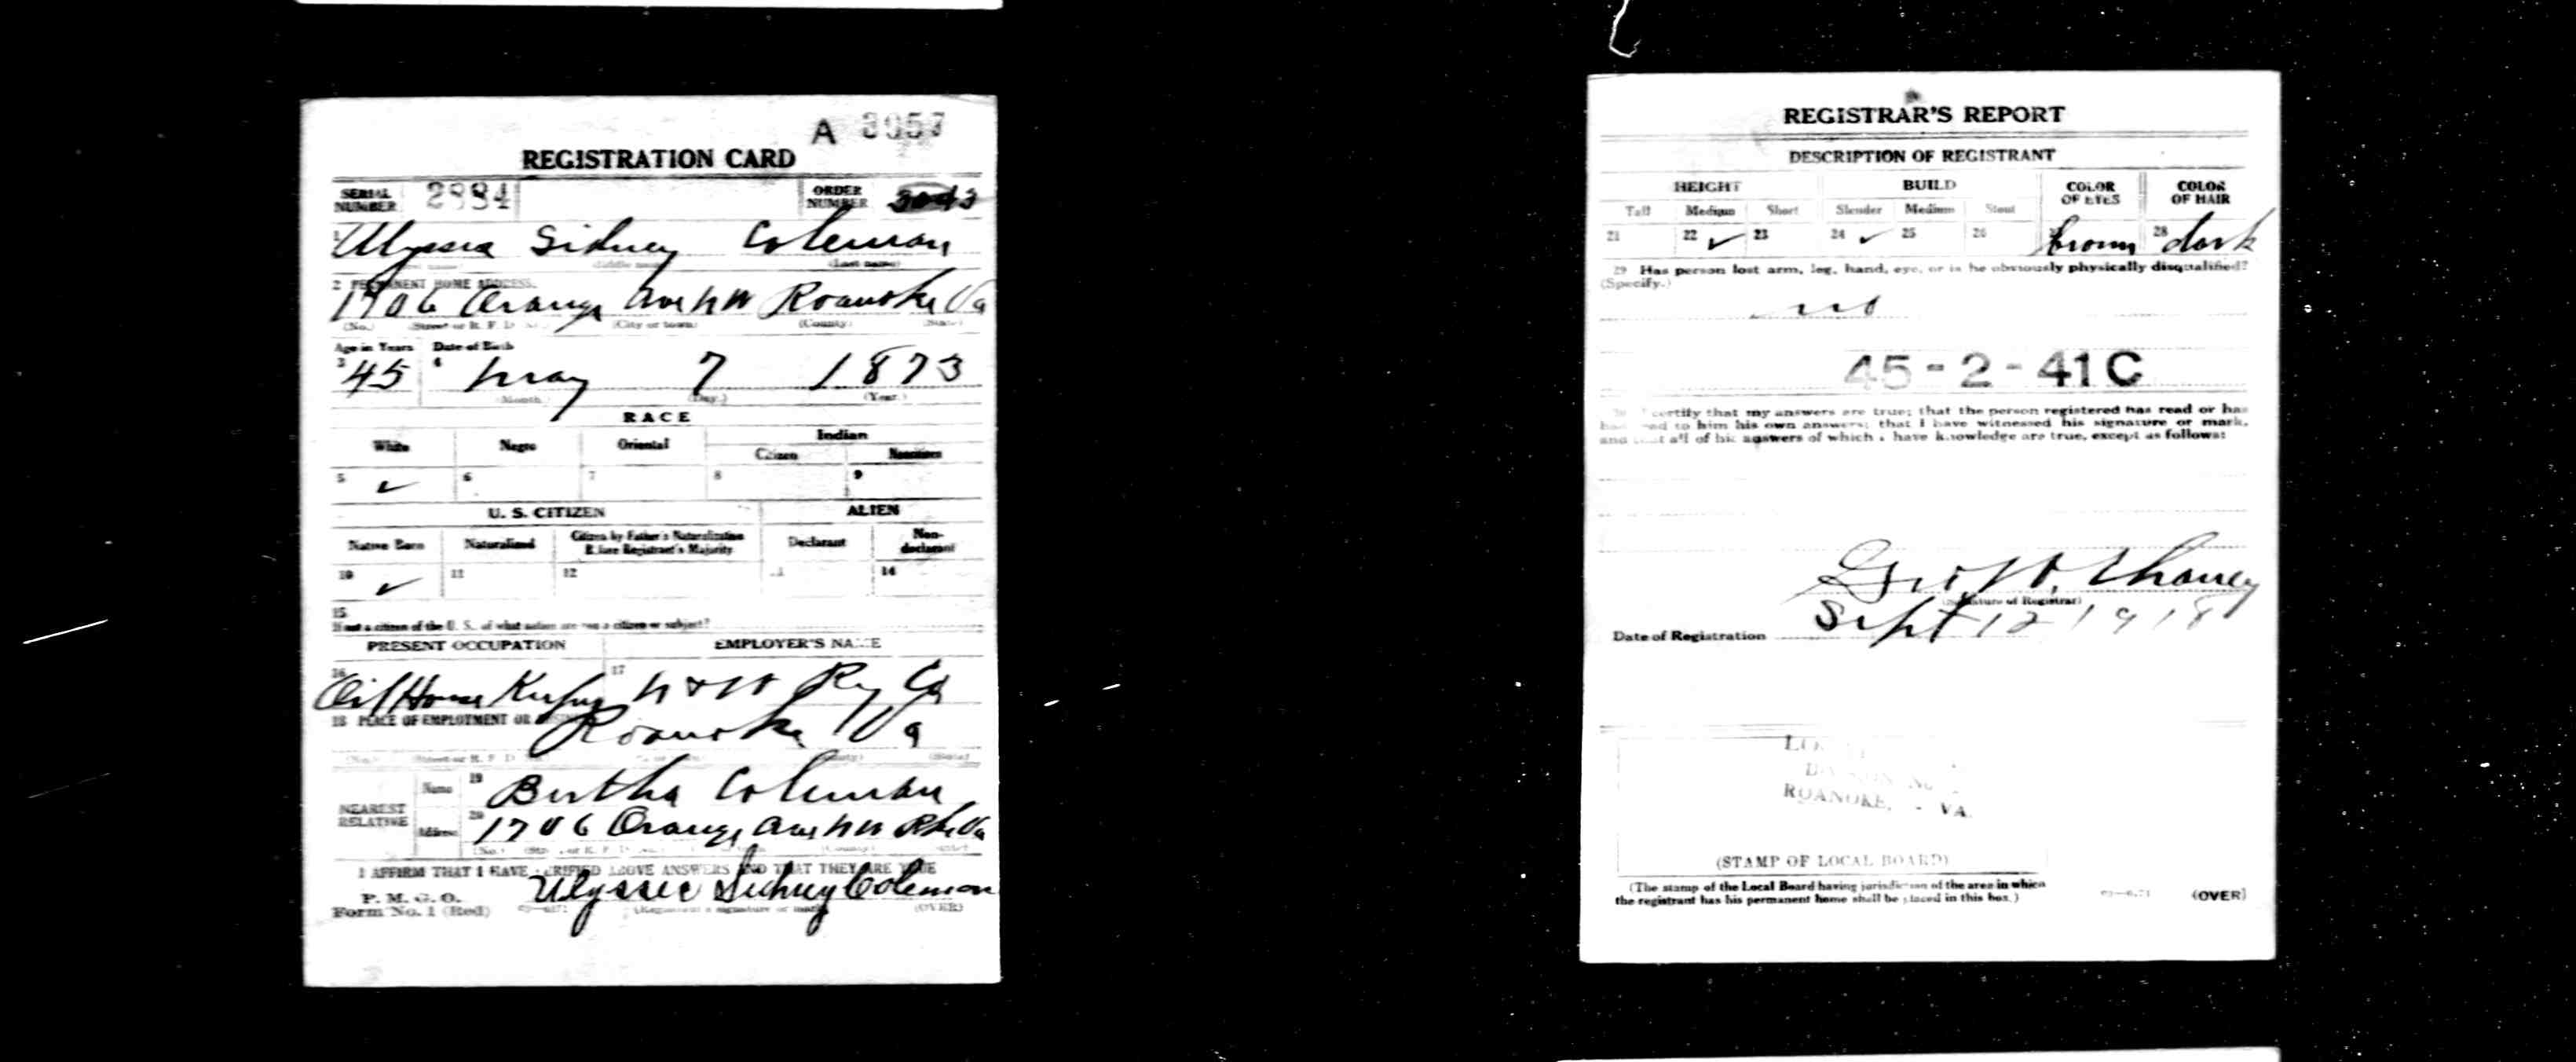 A 3957
REGISTRATION CARD
SERIAL NUMBER 2984 ORDER NUMBER
1 Ulysses Sidney Coleman
(Last name)
2 PERMANENT HOME ADDRESS.
1706 Orange Ave NW Roanoke Va
(No.) (Street or R. F. D. No.) (City or town) (County) (State)
Age in Years Date of Birth
3 45 4 May 7 1873
(Month.) (Day.) (Year.)
RACE
White Negro Oriental Indian
Citizen Noncitizen
5 ✓ 6 7 8 9
U. S. CITIZEN ALIEN
Native Born Naturalized Citizen by Father's Naturalization Before Registrant's Majority Declarant Non-declarant
10 ✓ 11 12 14
15
If not a citizen of the U. S., of what nation are you a citizen or subject?
PRESENT OCCUPATION EMPLOYER'S NAME
16 Oil House 17 N & W Ry Co
18 PLACE OF EMPLOYMENT OR
Roanoke Va
(No.) (Street or R. F. D. (County) (State)
NEAREST RELATIVE Name 19 Bertha Coleman
Address 20 1706 Orange Ave NW Rke Va
I AFFIRM THAT I HAVE VERIFIED ABOVE ANSWERS AND THAT THEY ARE TRUE
P. M. G. O.
Form No. 1 (Red) Ulysses Sidney Coleman
(Registrant's signature or mark) (OVER)
REGISTRAR'S REPORT
DESCRIPTION OF REGISTRANT
HEIGHT BUILD COLOR OF EYES COLOR OF HAIR
Tall Medium Short Slender Medium Stout
21 22 ✓ 23 24 ✓ 25 26 brown 28 dark
29 Has person lost arm, leg, hand, eye, or is he obviously physically disqualified?
(Specify.)
no
45-2-41 C
30 I certify that my answers are true; that the person registered has read or has
had read to him his own answers; that I have witnessed his signature or mark,
and that all of his answers of which I have knowledge are true, except as follows:
Geo W. Chaney
(Signature of Registrar)
Date of Registration Sept 12 1918
ROANOKE, - VA.
(STAMP OF LOCAL BOARD)
(The stamp of the Local Board having jurisdiction of the area in which
the registrant has his permanent home shall be placed in this box.)
(OVER)